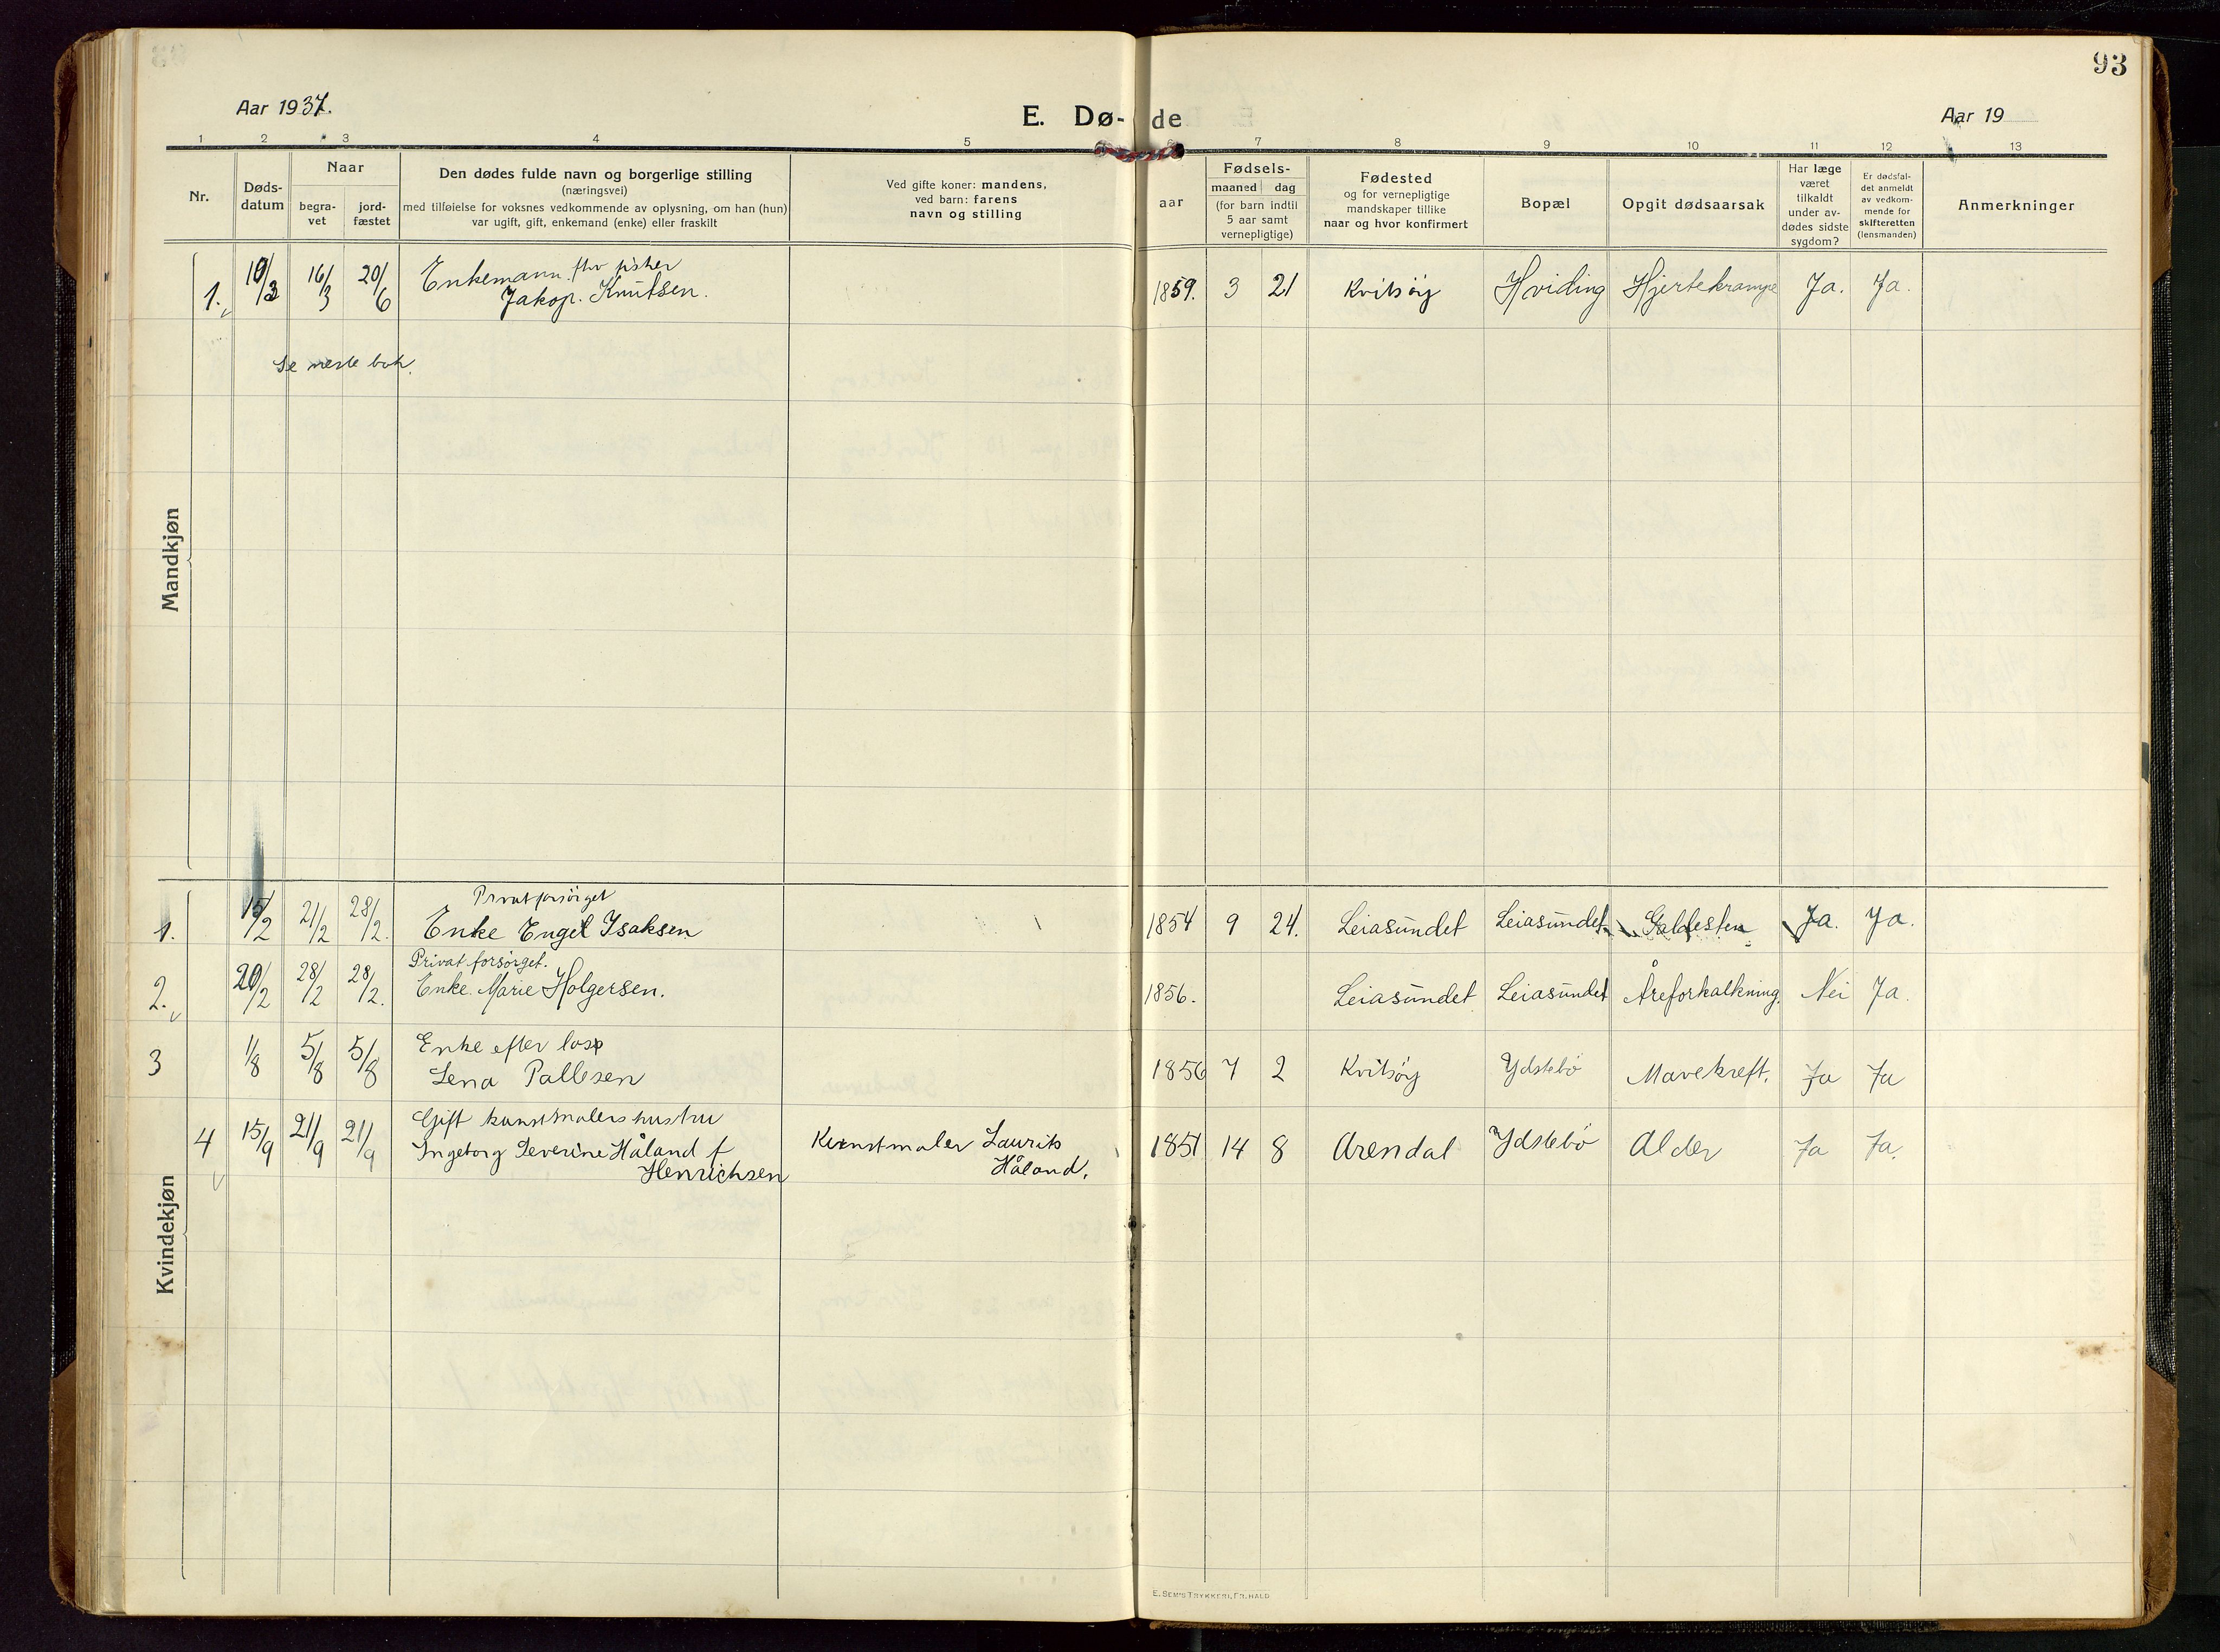 93
Aar 1937.
E. Dø-
de
Aar 19
1 2 3 4 5 7 8 9 10 11 12 13
Nr.
Døds-
datum
Naar
begra-
vet
jord-
fæstet
Den dødes fulde navn og borgerlige stilling
(næringsvei)
med tilføielse for voksnes vedkommende av oplysning, om han (hun)
var ugift, gift, enkemand (enke) eller fraskilt
Ved gifte koner: mandens,
ved barn: farens
navn og stilling
aar
Fødsels-
maaned dag
(for barn indtil
5 aar samt
vernepligtige)
Fødested
og for vernepligtige
mandskaper tillike
naar og hvor konfirmert
Bopæl
Opgit dødsaarsak
Har læge
været
tilkaldt
under av-
dødes sidste
sygdom?
Er dødsfal-
det anmeldt
av vedkom-
mende for
skifteretten
(lensmanden)
Anmerkninger
Mandkjøn
1. 10/3 16/3 20/6 Enkemann fhv fisker
Jakop. Knutsen. 1859. 3 21 Kvitsöy Hviding Hjertekrampe Ja. Ja.
Se neste bok.
Kvindekjøn
Privatforsörget
1. 15/2 21/2 28/2. Enke Engel Isaksen 1854 9 24. Leiasundet Leiasundet Galdesten Ja. Ja.
Privat forsörget.
2. 20/2 28/2 28/2. Enke Marie Holgersen. 1856. Leiasundet Leiasundet Åreforkalkning. Nei Ja.
Enke efter los
3 1/8 5/8 5/8 Lena Pallesen 1856 7 2 Kvitsöy Ydstebö Mavekreft. Ja Ja
Gift kunstmalers hustru
4 15/9 21/9 21/9 Ingeborg Severine Håland f Kunstmaler Laurits 1851 14 8 Arendal Ydstebö Alder Ja Ja.
Henrichsen Håland.
E. SEM'S TRYKKERI, FR. HALD